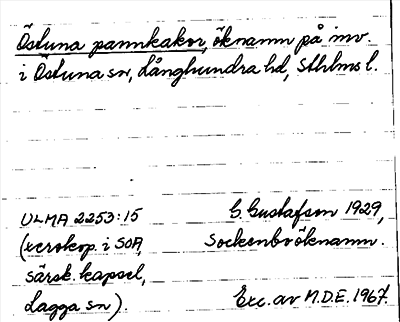 Östuna pannkakor, öknamn på inv.
i Östuna sn, Långhundra hd, Sthlms l.
ULMA 2253:15 G. Gustafson 1929,
(xerokop. i SOA, Sockenboöknamn.
särsk. kapsel,
Lagga sn). Exc. av M.D.E. 1967.